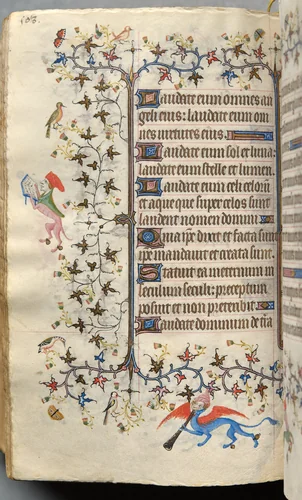 Laudate eum omnes an
geli eius: laudate eum om
nes uirtutes eius.
Laudate eum sol et luna:
laudate eum stelle et lumen.
Laudate eum celi celorum
et aque que super celos sunt
laudent nomen domini.
Quia ipse dixit et facta sunt
ipse mandauit et creata sunt.
Statuit ea in eternum in
seculum seculi: preceptum
posuit et non preteribit.
Laudate dominum de